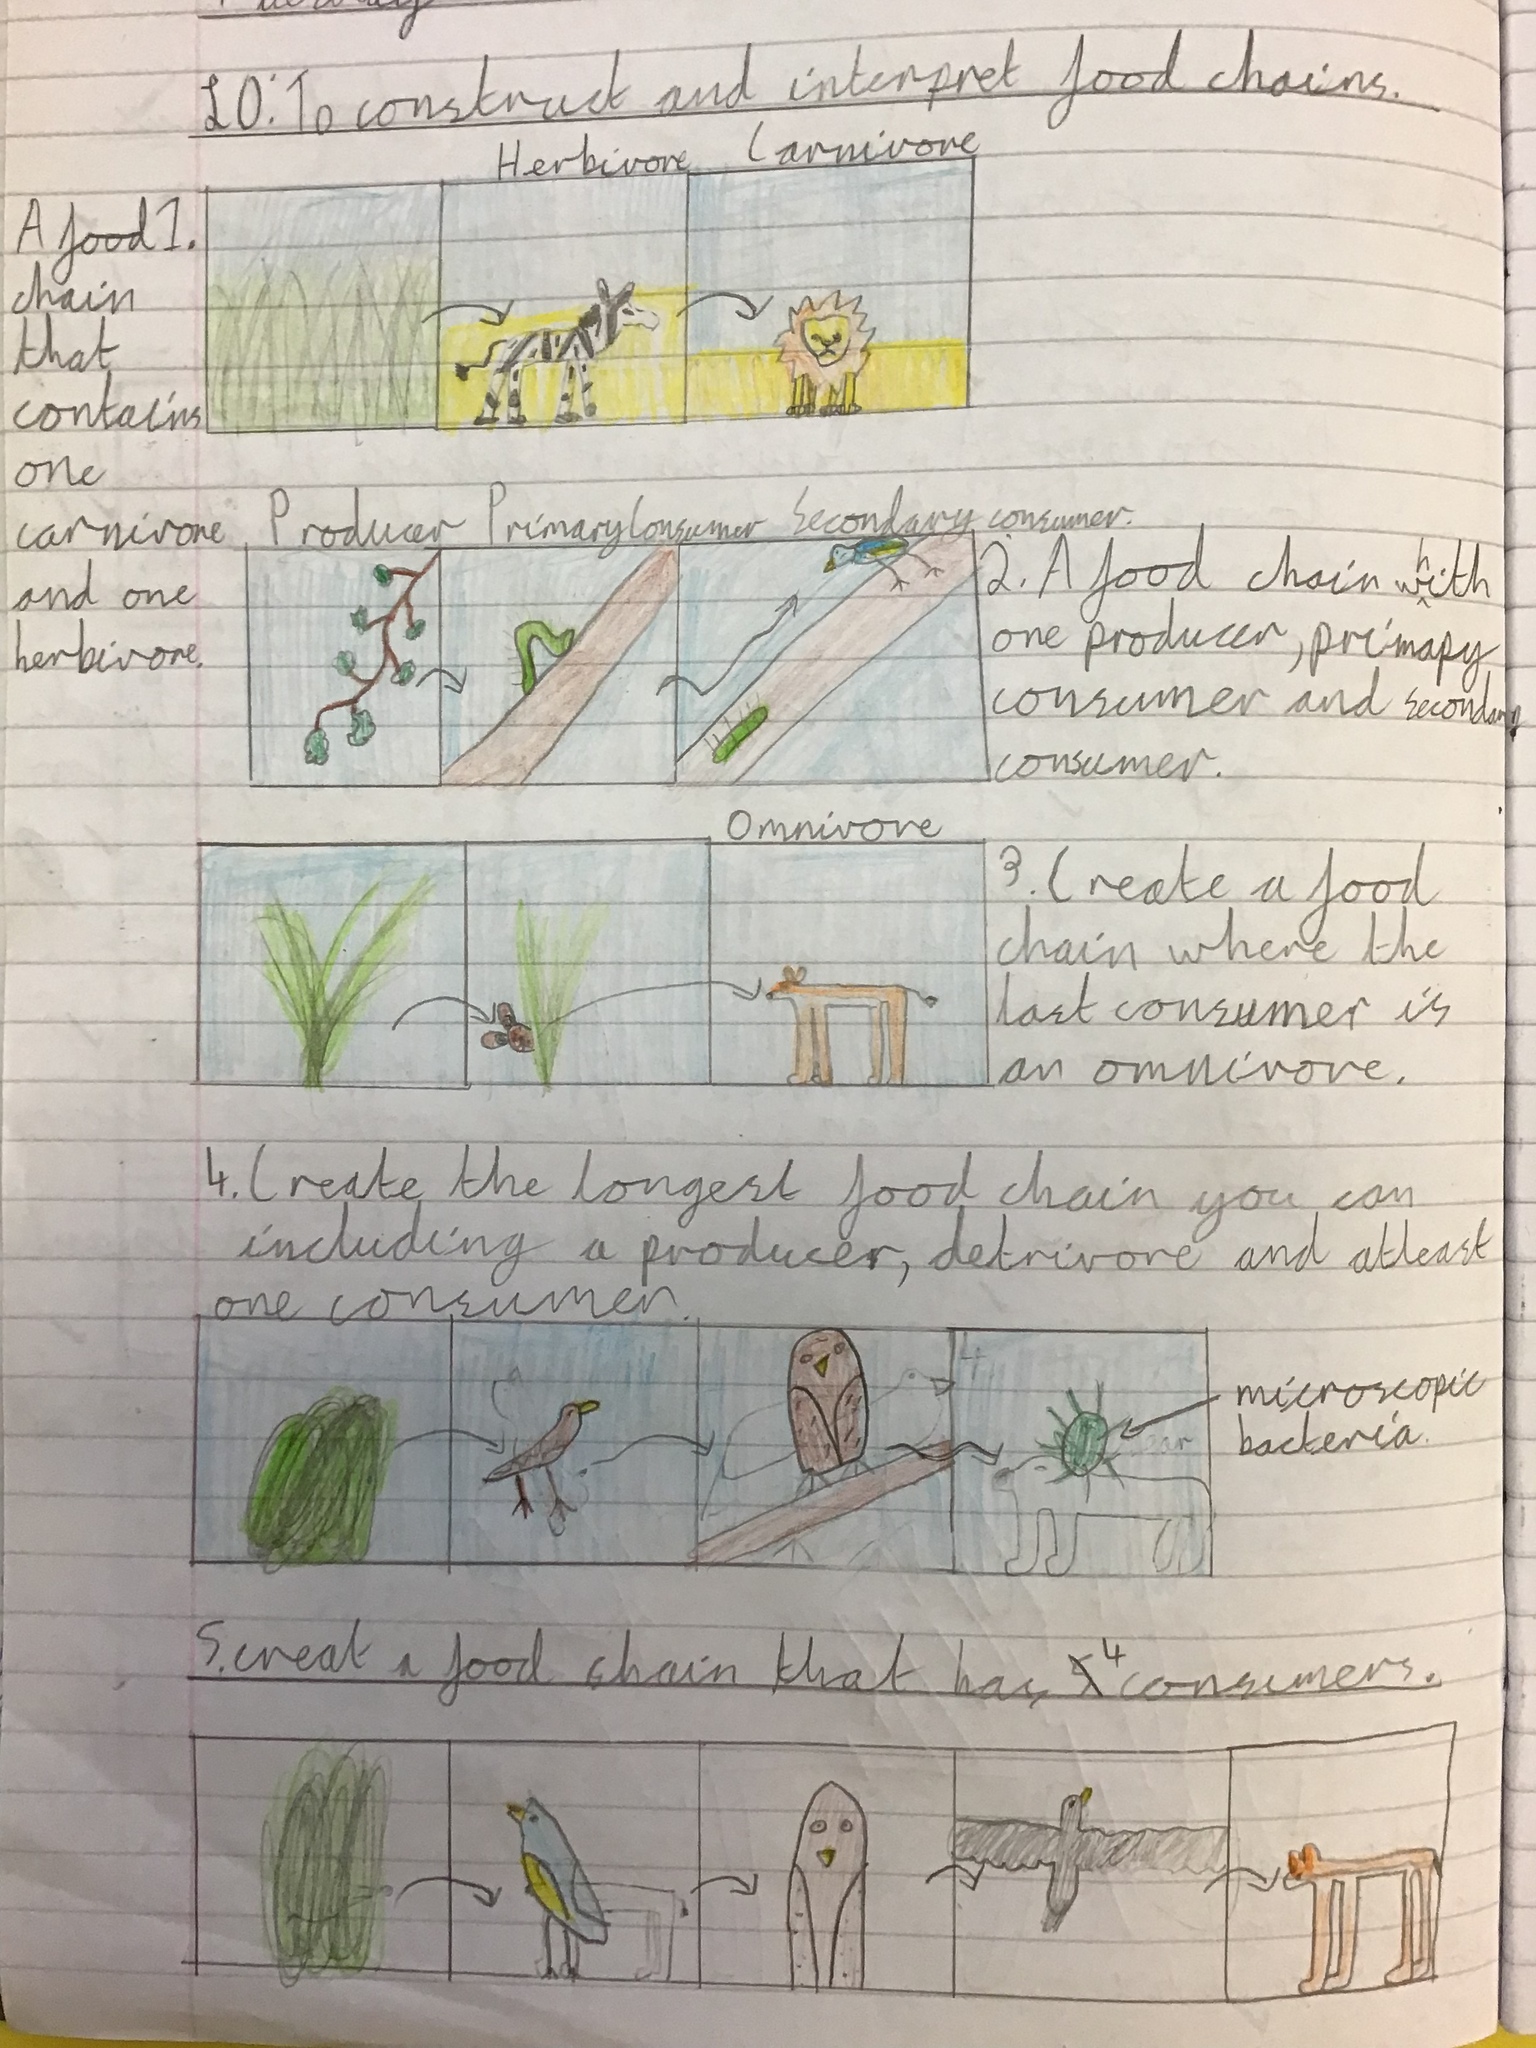 LO: To construct and interpret food chains.
Herbivore Carnivore
A food 1.
chain
that
contains
one
carnivore
and one
herbivore.
Producer Primary Consumer Secondary consumer.
2. A food chain with
one producer, primapy
consumer and secondary
consumer.
Omnivore
3. Create a food
chain where the
last consumer is
an omnivore.
4. Create the longest food chain you can
including a producer, detrivore and atleast
one consumer.
microscopic
bacteria.
5. creat a food chain that has 4 consumers.